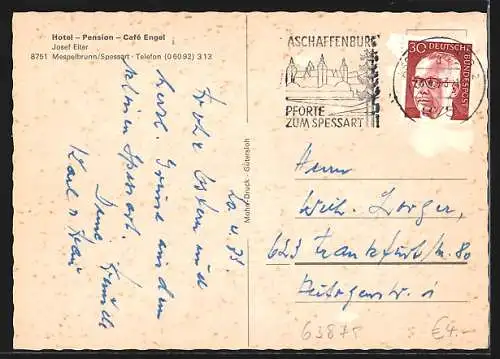 Hotel – Pension – Café Engel
Josef Elter
8751 Mespelbrunn/Spessart · Telefon (0 60 92) 3 13
20. 4. 73.
Frohe Ostern und
herzl. Grüsse aus dem
schönen Spessart.
Karl u
Mohn-Druck · Gütersloh
ASCHAFFENBURG
PFORTE
ZUM SPESSART
30 DEUTSCHE
BUNDESPOST
Herrn
Wilh. Zorger,
623 Frankfurt/m. 80
1
63875
€4.-